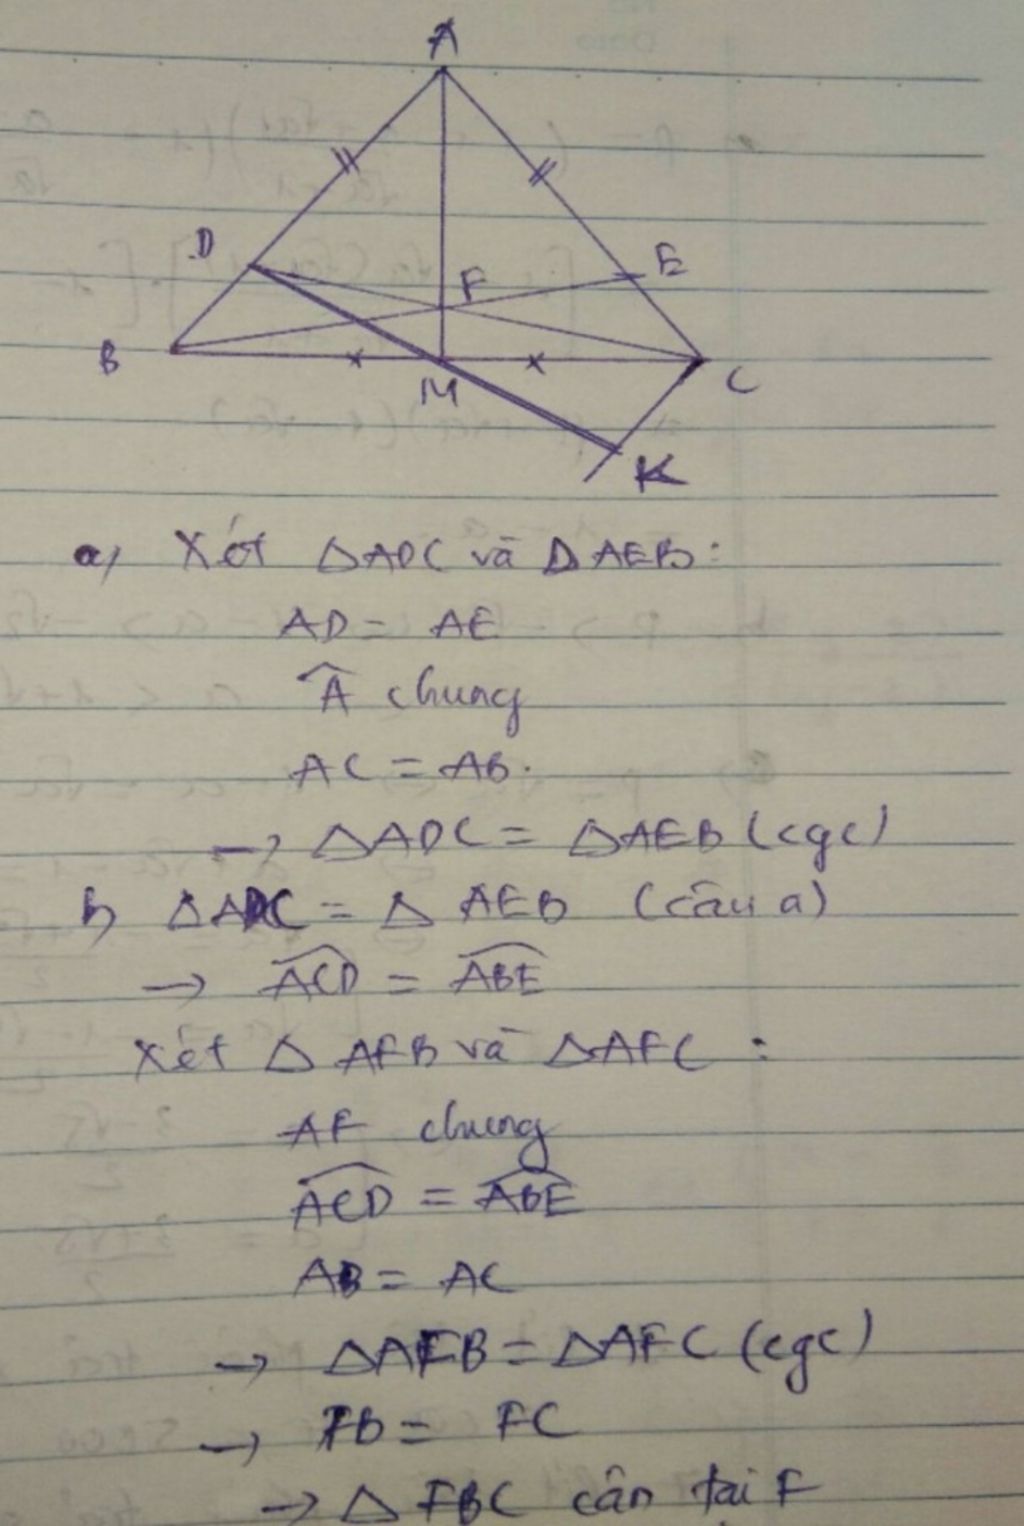 A
D
E
F
B
M
C
K
a) Xét ΔADC và ΔAEB:
AD = AE
Â chung
AC = AB.
→ ΔADC = ΔAEB (cgc)
b) ΔADC = Δ AEB (câu a)
→ \widehat{ACD} = \widehat{ABE}
Xét Δ AFB và ΔAFC :
AF chung
\widehat{ACD} = \widehat{ABE}
AB = AC
→ ΔAFB = ΔAFC (cgc)
→ FB = FC
→ Δ FBC cân tại F